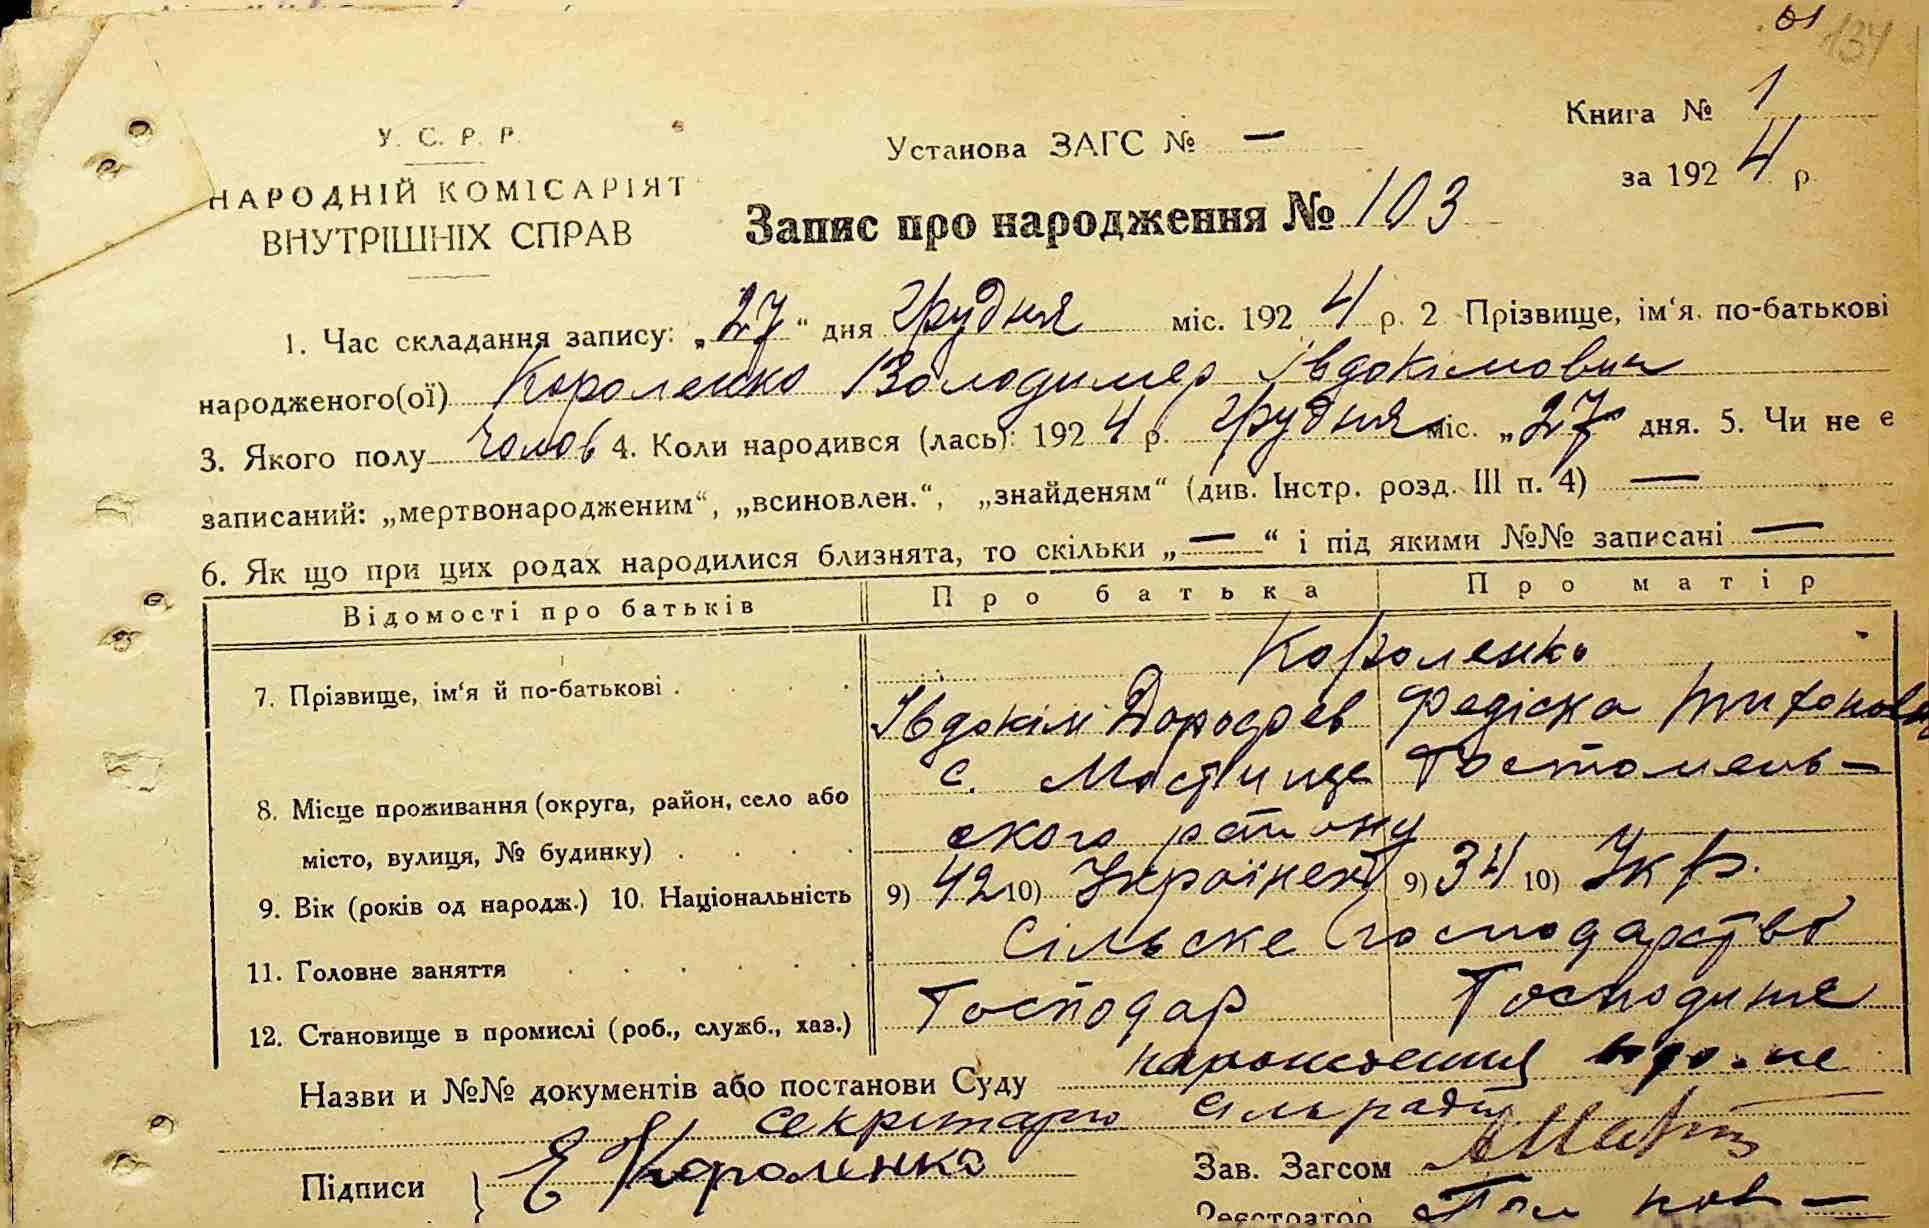 134
У. С. Р. Р.
НАРОДНІЙ КОМІСАРІЯТ
ВНУТРІШНІХ СПРАВ
Установа ЗАГС № —
Книга № 1
за 1924 р.
Запис про народження № 103
1. Час складання запису: „27“ дня грудня міс. 1924 р. 2 Прізвище, ім‘я, по-батькові
народженого(ої) Короленко Володимер Івдокімович
3. Якого полу чолов 4. Коли народився (лась): 1924 р. грудня міс. „27“ дня. 5. Чи не є
записаний: „мертвонародженим“, „всиновлен.“, „знайденям“ (див. Інстр. розд. III п. 4) —
6. Як що при цих родах народилися близнята, то скільки „—“ і під якими №№ записані —
Відомості про батьків Про батька Про матір
Короленко
7. Прізвище, ім‘я й по-батькові . Івдокім Дорофеєв Федіска Тихоновна
8. Місце проживання (округа, район, село або с. Мостище Гостомель-
місто, вулиця, № будинку) . ского району
9. Вік (років од народж.) 10. Національність 9) 42 10) Українець 9) 34 10) Укр.
11. Головне заняття Сільске господарство
12. Становище в промислі (роб., служб., хаз.) Господар Господине
Назви и №№ документів або постанови Суду
секрітарю сільради
Підписи } Е Короленко Зав. Загсом
Реєстратор